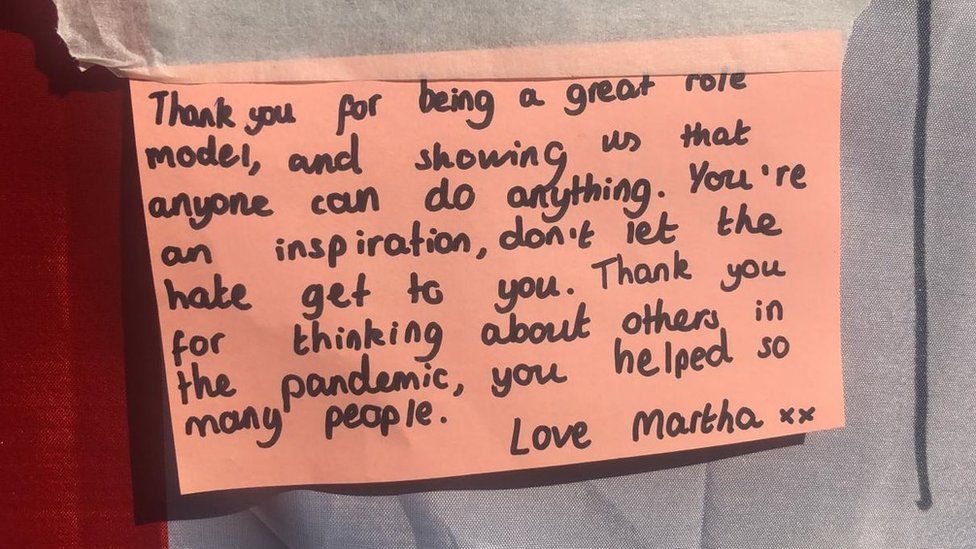 Thank you for being a great role
model, and showing us that
anyone can do anything. You're
an inspiration, don't let the
hate get to you. Thank you
for thinking about others in
the pandemic, you helped so
many people.
Love Martha xx